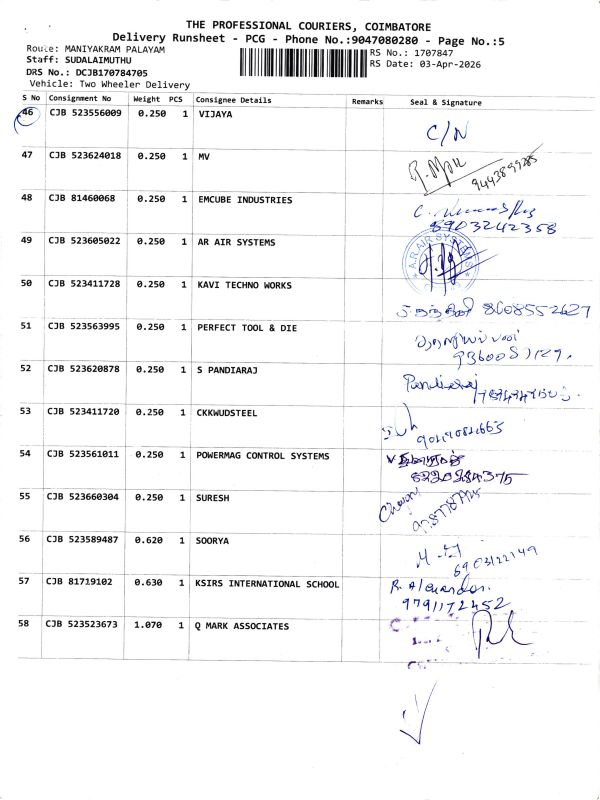 THE PROFESSIONAL COURIERS, COIMBATORE
Delivery Runsheet - PCG - Phone No.:9047080280 - Page No.:5
Route: MANIYAKRAM PALAYAM
RS No.: 1707847
Staff: SUDALAIMUTHU
RS Date: 03-Apr-2026
DRS No.: DCJB170784705
Vehicle: Two Wheeler Delivery
S No Consignment No Weight PCS Consignee Details Remarks Seal & Signature
46 CJB 523556009 0.250 1 VIJAYA
C/N
47 CJB 523624018 0.250 1 MV
9443899285
48 CJB 81460068 0.250 1 EMCUBE INDUSTRIES
8903242358
49 CJB 523605022 0.250 1 AR AIR SYSTEMS
A.R.AIR SYSTEMS
50 CJB 523411728 0.250 1 KAVI TECHNO WORKS
8608552627
51 CJB 523563995 0.250 1 PERFECT TOOL & DIE
52 CJB 523620878 0.250 1 S PANDIARAJ
Pandiaraj
53 CJB 523411720 0.250 1 CKKWUDSTEEL
54 CJB 523561011 0.250 1 POWERMAG CONTROL SYSTEMS
55 CJB 523660304 0.250 1 SURESH
56 CJB 523589487 0.620 1 SOORYA
6903122149
57 CJB 81719102 0.630 1 KSIRS INTERNATIONAL SCHOOL
9791172452
58 CJB 523523673 1.070 1 Q MARK ASSOCIATES